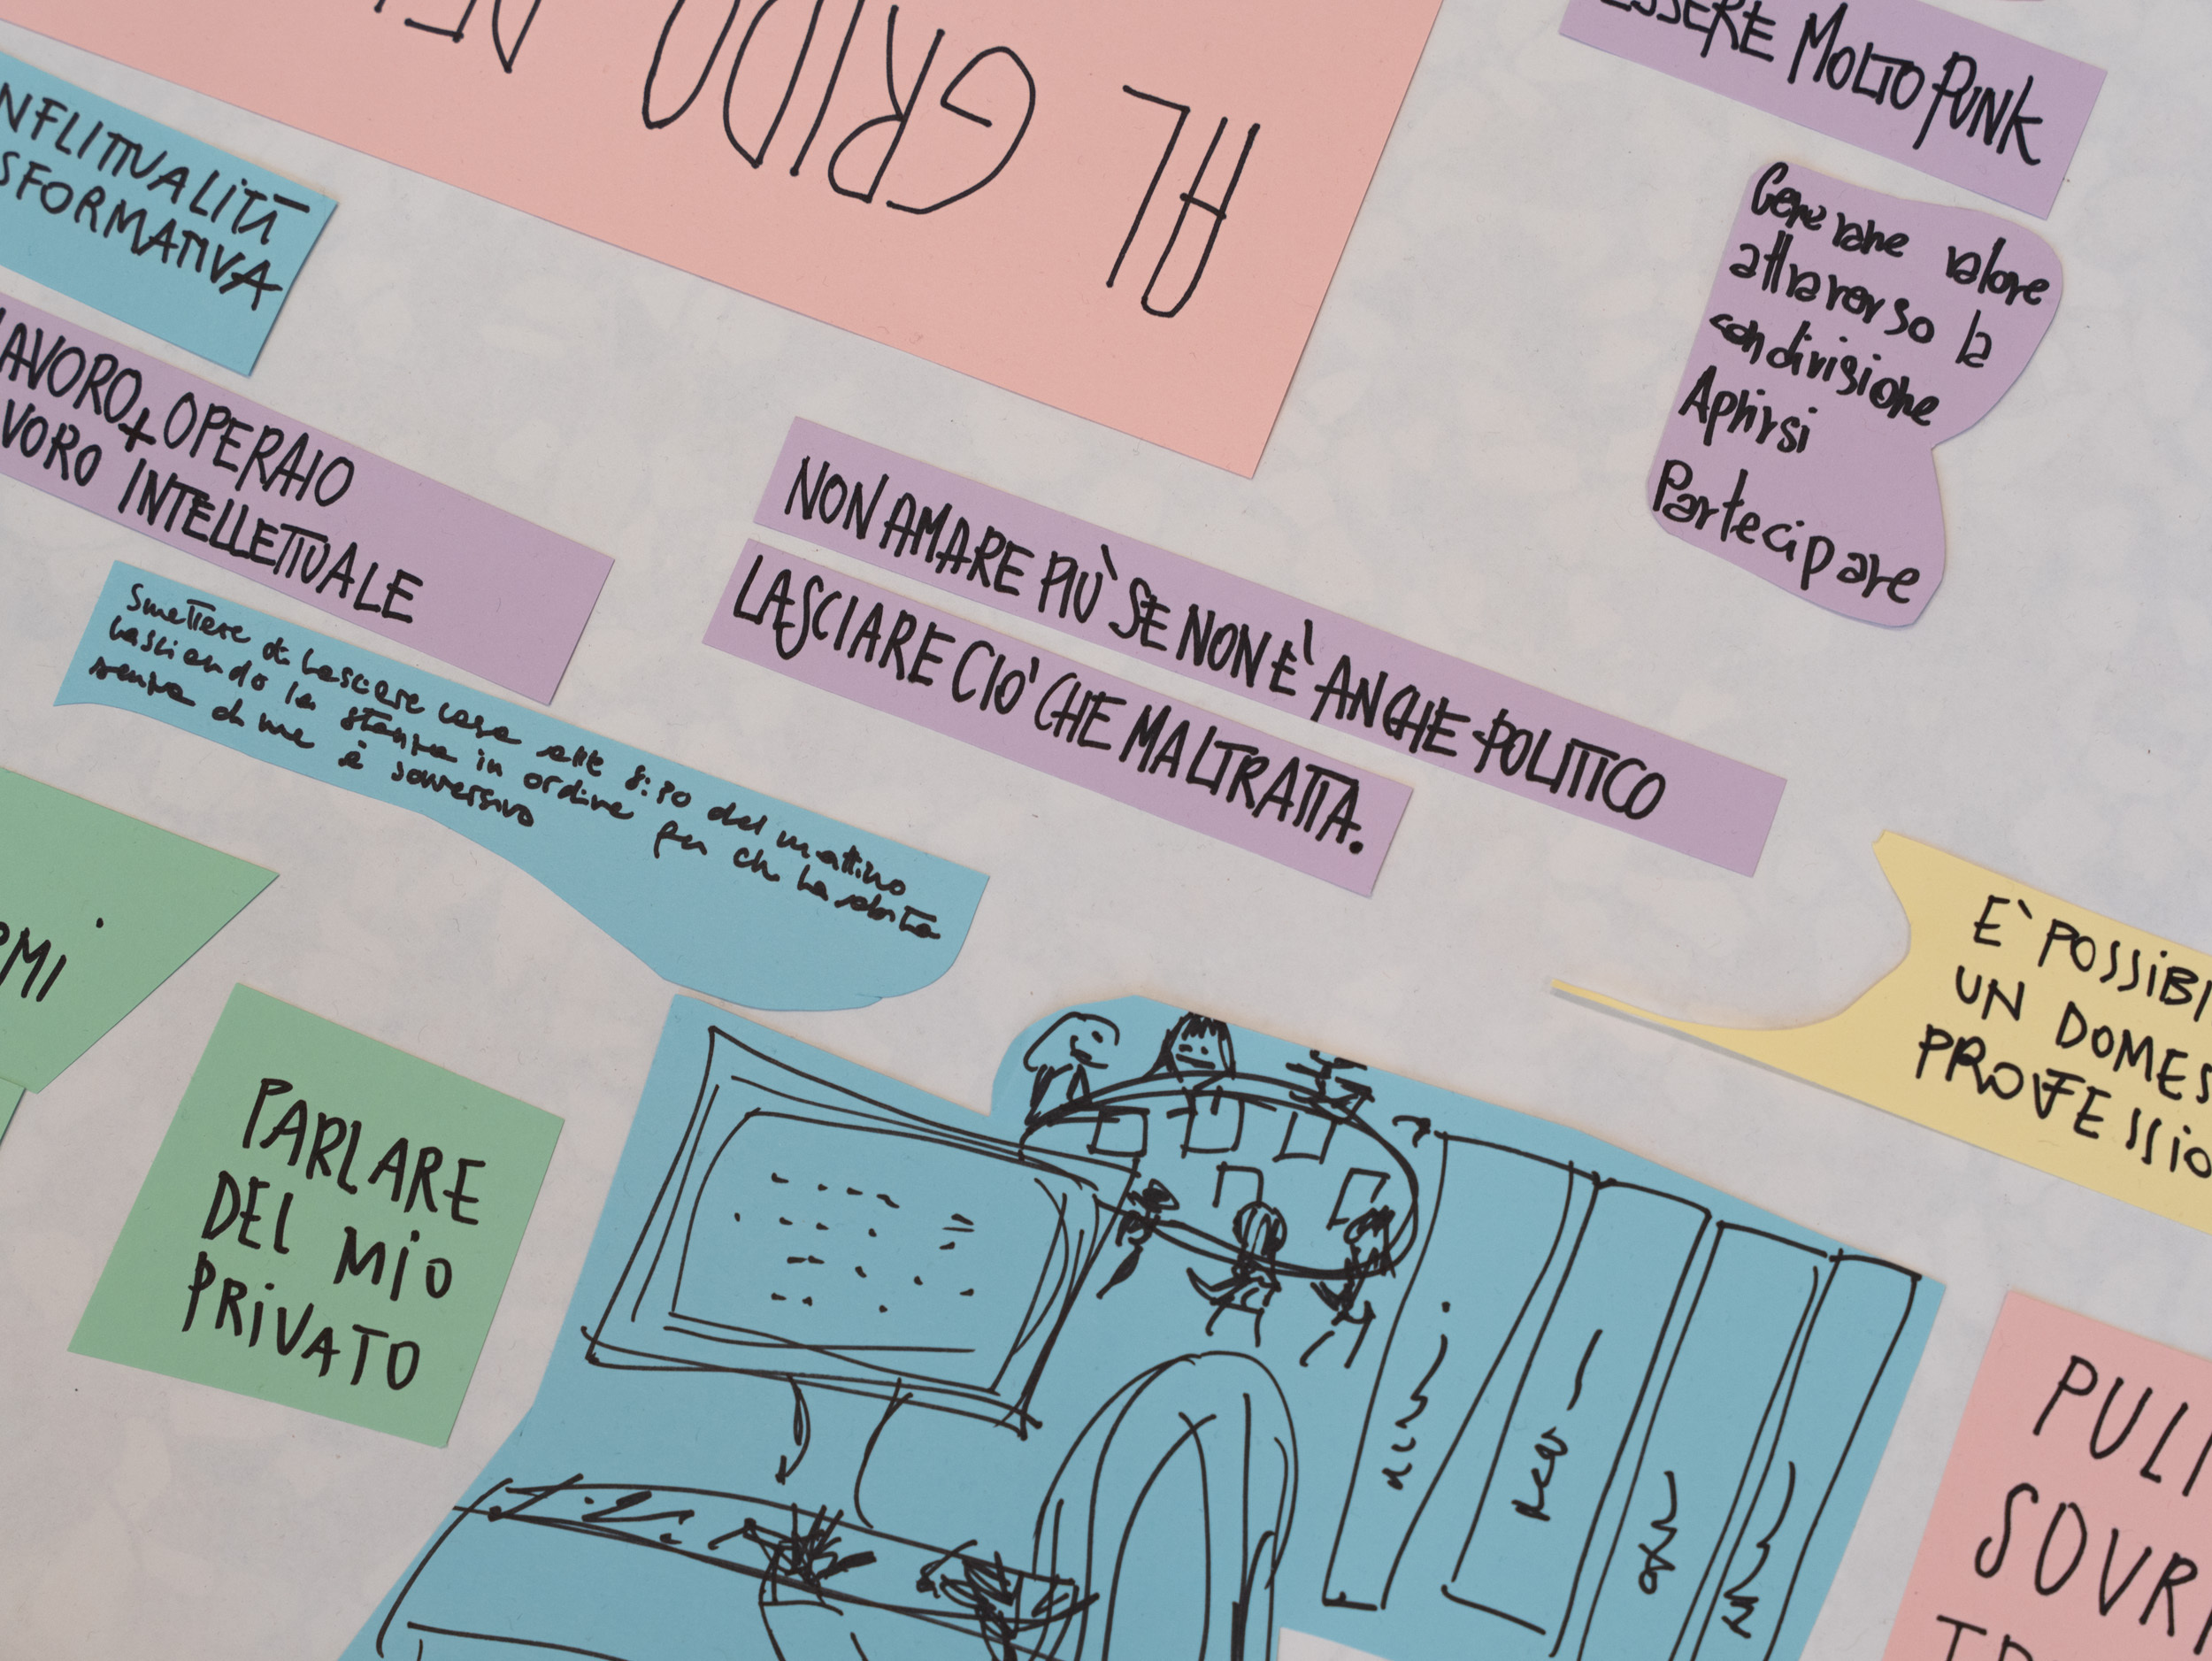 AL GRIDO
ESSERE MOLTO PUNK
NFLITTUALITÀ
SFORMATIVA
Generare valore
attraverso la
condivisione
Aprirsi
Partecipare
LAVORO OPERAIO
+
VORO INTELLETTUALE
NON AMARE PIÙ SE NON È ANCHE POLITICO
LASCIARE CIO' CHE MALTRATTA.
Smettere di lasciare casa alle 8:30 del mattino
lasciando la stanza in ordine per chi la abita
senza di me è sovversivo
E' POSSIBI
UN DOMES
PROFESSIO
RMI
PARLARE
DEL MIO
PRIVATO
PULI
SOVR